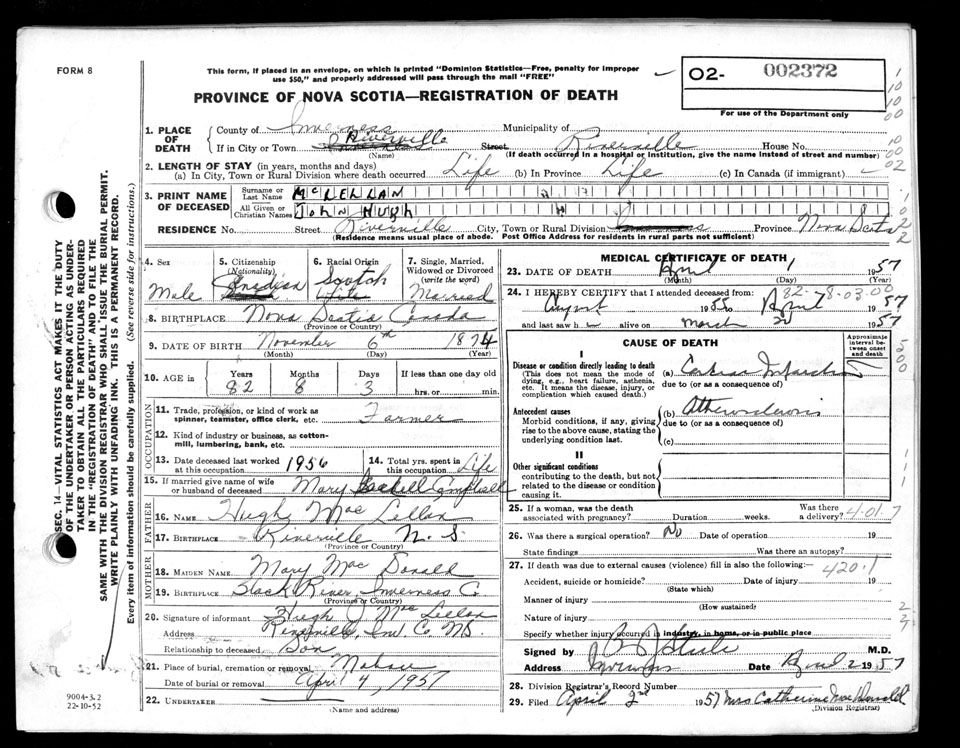 FORM 8
This form, if placed in an envelope, on which is printed "Dominion Statistics—Free, penalty for improper
use $50," and properly addressed will pass through the mail "FREE"
O2- 002372
For use of the Department only
PROVINCE OF NOVA SCOTIA—REGISTRATION OF DEATH
1. PLACE OF DEATH
County of Inverness Municipality of
If in City or Town Riverville Street Riverville House No.
(Name) (If death occurred in a hospital or institution, give the name instead of street and number)
2. LENGTH OF STAY (in years, months and days)
(a) In City, Town or Rural Division where death occurred Life (b) In Province Life (c) In Canada (if immigrant)
3. PRINT NAME OF DECEASED
Surname or Last Name McLELLAN
All Given or Christian Names JOHN HUGH
RESIDENCE No. Street Riverville City, Town or Rural Division Inverness Province Nova Scotia
(Residence means usual place of abode. Post Office Address for residents in rural parts not sufficient)
4. Sex Male
5. Citizenship (Nationality) Canadian
6. Racial Origin Scotch White
7. Single, Married, Widowed or Divorced (write the word) Married
8. BIRTHPLACE Nova Scotia Canada
(Province or Country)
9. DATE OF BIRTH November 6th 1874
(Month) (Day) (Year)
10. AGE in Years Months Days If less than one day old
82 8 3 hrs. or min.
OCCUPATION
11. Trade, profession, or kind of work as spinner, teamster, office clerk, etc. Farmer
12. Kind of industry or business, as cotton-mill, lumbering, bank, etc.
13. Date deceased last worked at this occupation 1956
14. Total yrs. spent in this occupation Life
15. If married give name of wife or husband of deceased Mary Campbell
FATHER
16. NAME Hugh Mac Lellan
17. BIRTHPLACE Riverville N. S.
(Province or Country)
MOTHER
18. MAIDEN NAME Mary Mac Donald
19. BIRTHPLACE Black River, Inverness C
(Province or Country)
20. Signature of informant Hugh J Mac Lellan
Address Riverville, Inv. C. NS.
Relationship to deceased Son
21. Place of burial, cremation or removal Mabou
Date of burial or removal April 4, 1957
22. UNDERTAKER
(Name and address)
MEDICAL CERTIFICATE OF DEATH
23. DATE OF DEATH April 1 1957
(Month) (Day) (Year)
24. I HEREBY CERTIFY that I attended deceased from: 82-8-03.00
August 1955 to April 1957
and last saw h alive on March 1957
CAUSE OF DEATH
Approximate interval between onset and death
I
Disease or condition directly leading to death
(This does not mean the mode of dying, e.g., heart failure, asthenia, etc. It means the disease, injury, or complication which caused death.)
(a) Cardiac Infarction
due to (or as a consequence of)
Antecedent causes
Morbid conditions, if any, giving rise to the above cause, stating the underlying condition last.
(b) Atherosclerosis
due to (or as a consequence of)
(c)
II
Other significant conditions
contributing to the death, but not related to the disease or condition causing it.
25. If a woman, was the death associated with pregnancy? Duration weeks. Was there a delivery? 4-01-7
26. Was there a surgical operation? No Date of operation 19
State findings Was there an autopsy?
27. If death was due to external causes (violence) fill in also the following:— 420.1
Accident, suicide or homicide? Date of injury 19
(State which)
Manner of injury
(How sustained)
Nature of injury
Specify whether injury occurred in industry, in home, or in public place
Signed by M.D.
Address Inverness Date April 2 1957
28. Division Registrar's Record Number
29. Filed April 2nd 1957 Mrs Catherine MacDonald
(Division Registrar)
SEC. 14—VITAL STATISTICS ACT MAKES IT THE DUTY
OF THE UNDERTAKER OR PERSON ACTING AS UNDER-
TAKER TO OBTAIN ALL THE PARTICULARS REQUIRED
IN THE "REGISTRATION OF DEATH" AND TO FILE THE
SAME WITH THE DIVISION REGISTRAR WHO SHALL ISSUE THE BURIAL PERMIT.
WRITE PLAINLY WITH UNFADING INK. THIS IS A PERMANENT RECORD.
Every item of information should be carefully supplied. (See reverse side for instructions.)
9004-3.2
22-10-52